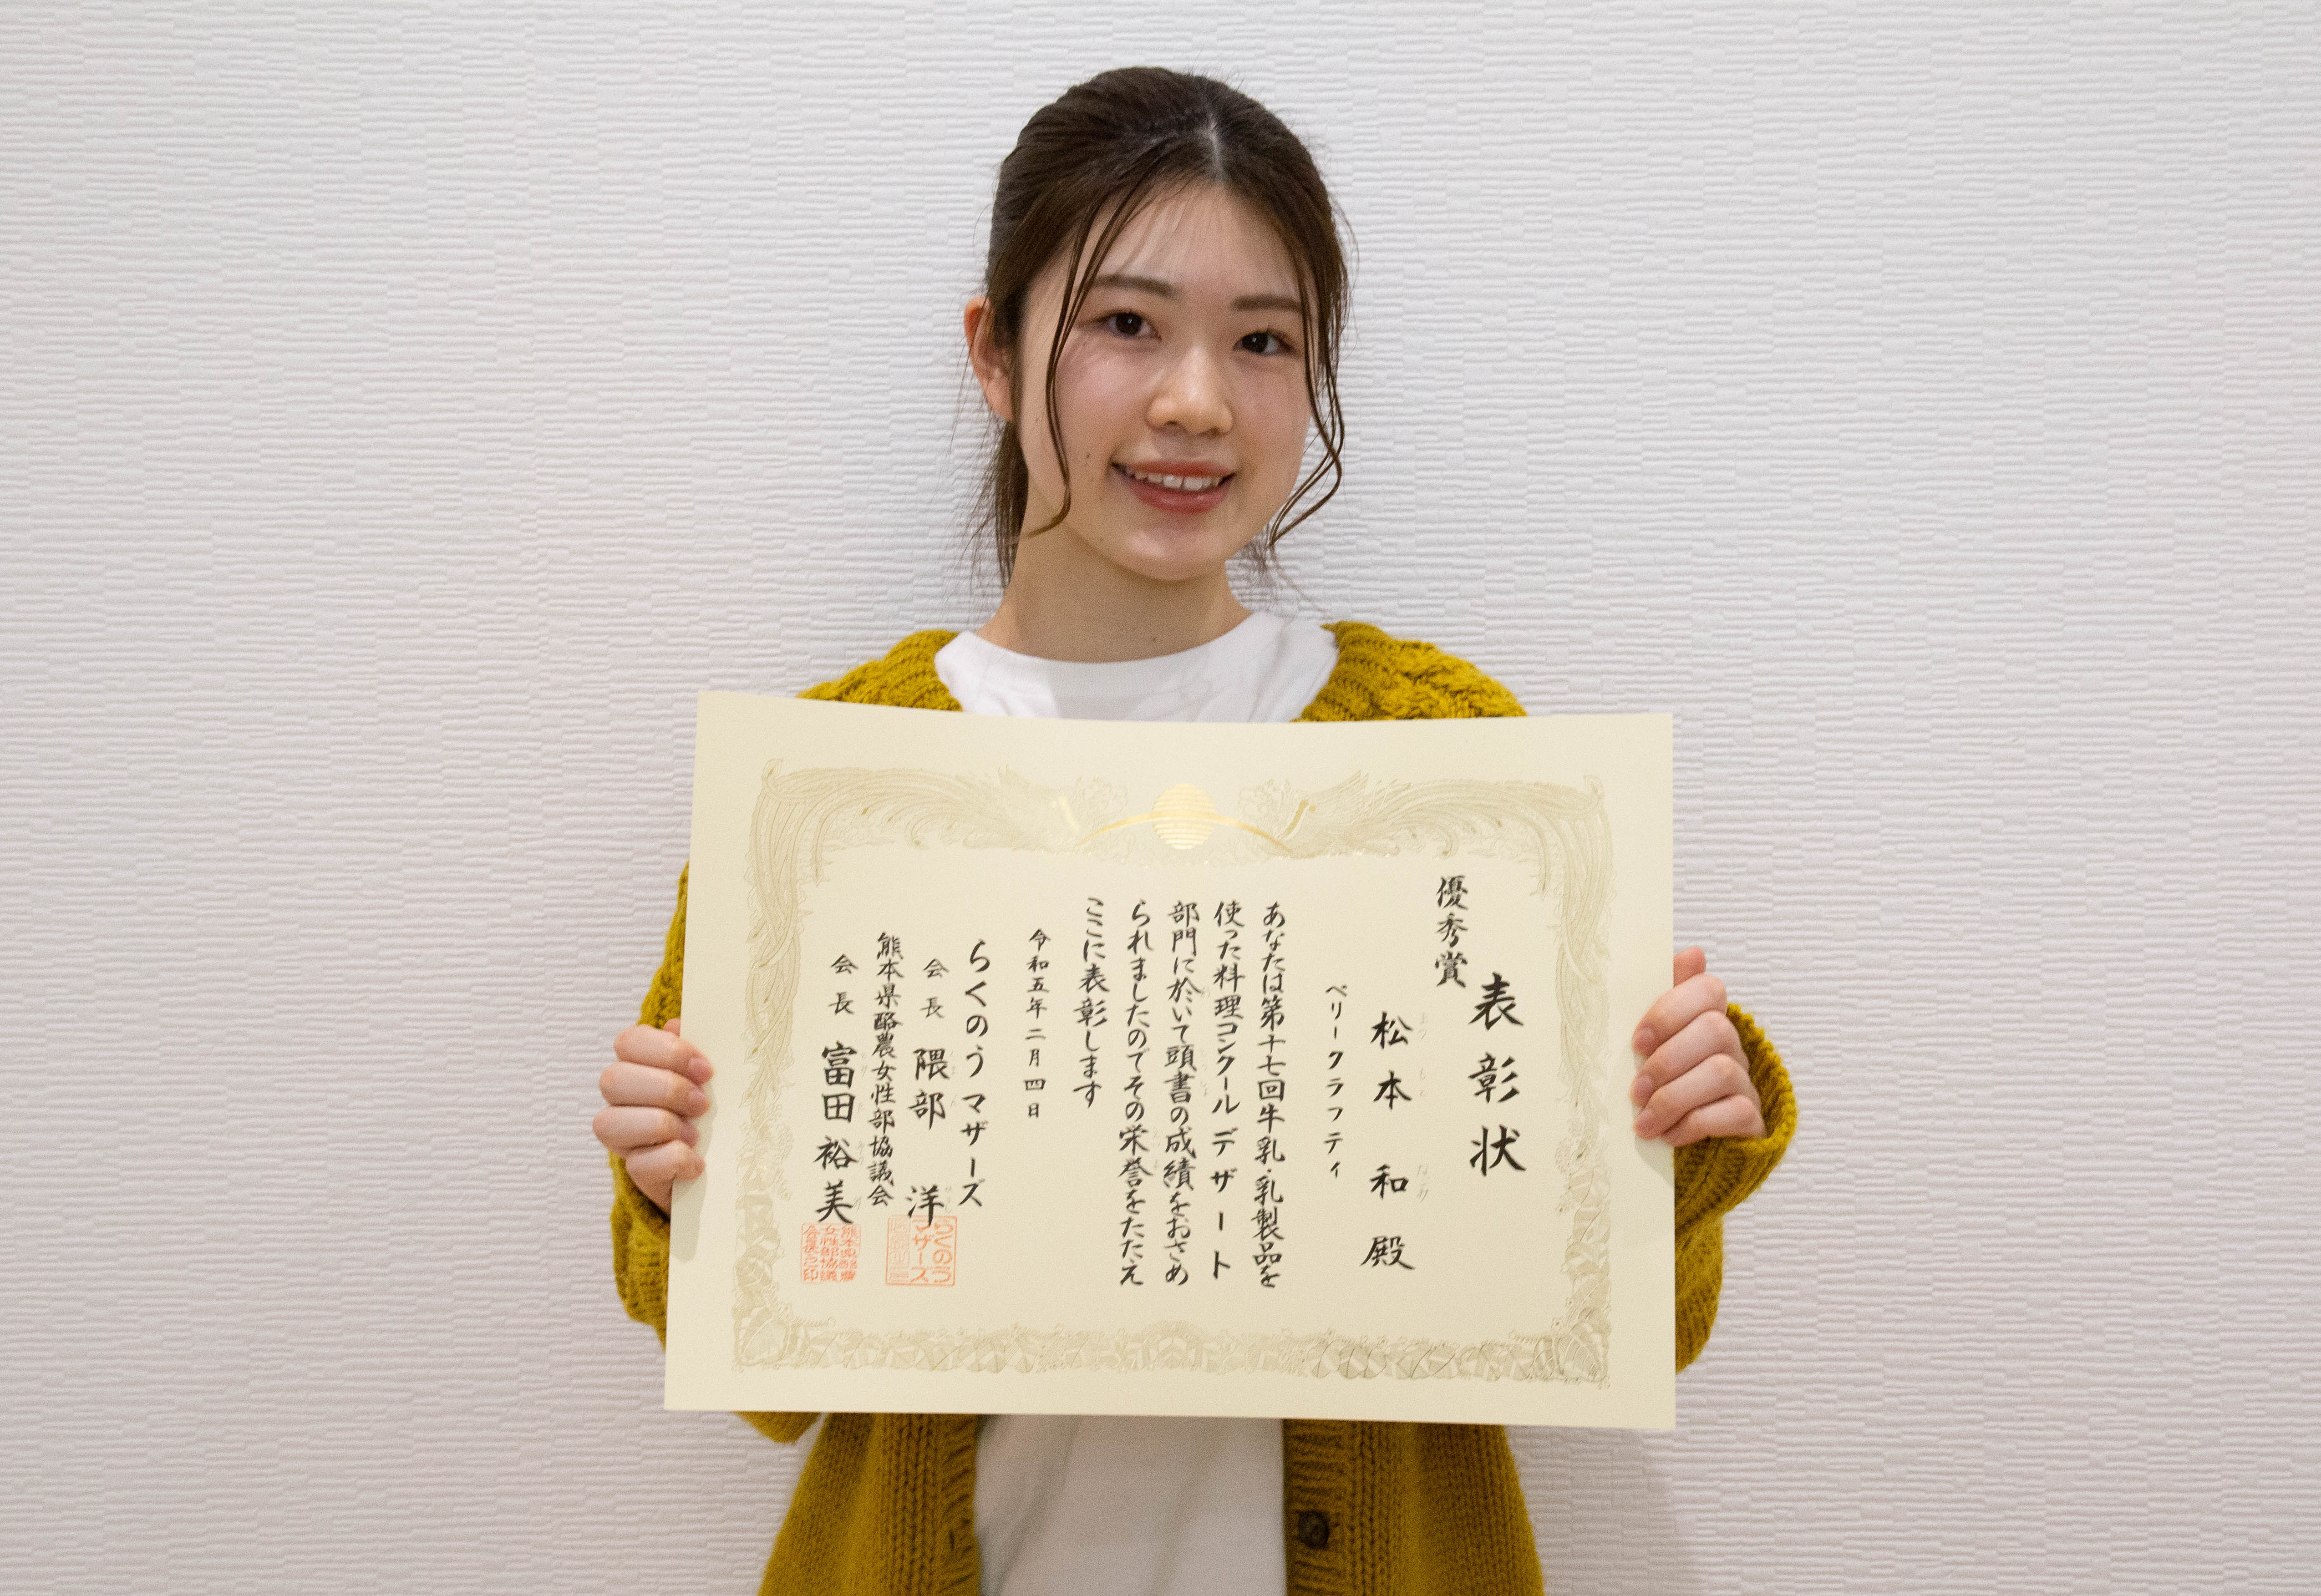 表彰状
優秀賞
松本和殿
ベリークラフティ
あなたは第十七回牛乳・乳製品を
使った料理コンクールデザート
部門に於いて頭書の成績をおさめ
られましたのでその栄誉をたたえ
ここに表彰します
令和五年二月四日
らくのうマザーズ
会長 隈部 洋
熊本県酪農女性部協議会
会長 富田裕美
らくのう
マザーズ
熊本県酪農
女性部協議
会長之印